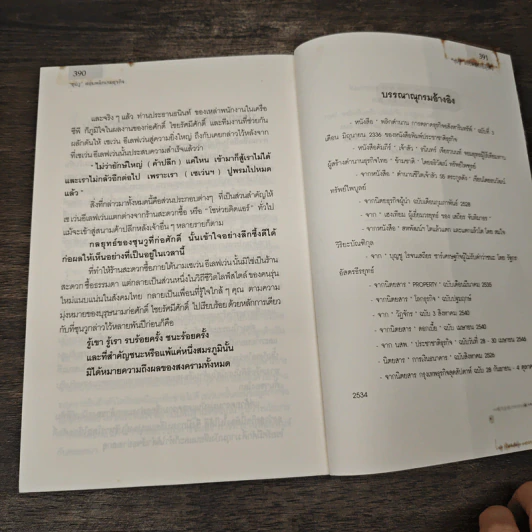 390
"ซุนวู" ตลบหลังเกมธุรกิจ
และจริง ๆ แล้ว ท่านประธานธนินท์ ของเหล่าพนักงานในเครือ
ซีพี ก็ภูมิใจในผลงานของก่อศักดิ์ ไชยรัศมีศักดิ์ และทีมงานที่ช่วยกัน
ผลักดันให้ เซเว่น อีเลฟเว่นสู่ความยิ่งใหญ่ ถึงกับเคยกล่าวไว้หลังจาก
ที่เซเว่น อีเลฟเว่นนั้นประสบความสำเร็จแล้วว่า
" ไม่ว่ายักษ์ใหญ่ ( ค้าปลีก ) แค่ไหน เข้ามาก็สู้เราไม่ได้
และเราไม่กลัวอีกต่อไป เพราะเรา ( เซเว่นฯ ) ปูพรมไปหมด
แล้ว "
สิ่งที่กล่าวมาทั้งหมดนี้คือส่วนประกอบต่างๆ ที่เป็นส่วนสำคัญให้
เซเว่นอีเลฟเว่นแตกต่างจากร้านสะดวกซื้อ หรือ " โชห่วยติดแอร์ " ทั่วไป
แม้จะเข้าสู่สนามค้าปลีกหลังเจ้าอื่น ๆ หลายรายก็ตาม
กลยุทธ์ของซุนวูที่ก่อศักดิ์ นั้นเข้าใจอย่างลึกซึ้งก็ได้
ก่อผลให้เห็นอย่างที่เป็นอยู่ในเวลานี้
ที่ทำให้ร้านสะดวกซื้อภายใต้นามเซเว่น อีเลฟเว่น นั้นมิใช่เป็นร้าน
สะดวก ซื้อธรรมดา แต่กลายเป็นส่วนหนึ่งในวิถีชีวิตไลฟ์สไตล์ ของคนรุ่น
ใหม่แนบแน่นในสังคมไทย กลายเป็นเพื่อนที่รู้ใจใกล้ ๆ คุณ ตามความ
มุ่งหมายของบุรุษนามก่อศักดิ์ ไชยรัศมีศักดิ์ ไปเรียบร้อย ด้วยหลักการเดียว
กับที่ซุนวูกล่าวไว้หลายพันปีก่อนก็คือ
รู้เขา รู้เรา รบร้อยครั้ง ชนะร้อยครั้ง
และที่สำคัญชนะหรือแพ้แค่หนึ่งสมรภูมินั้น
มิได้หมายความถึงผลของสงครามทั้งหมด
391
บรรณานุกรมอ้างอิง
- หนังสือ " พลิกตำนาน
เดือน มิถุนายน 2536 ของหนังสือพิมพ์ประชาชาติธุรกิจ
ผู้สร้างตำนานธุรกิจไทย
ทรัพย์ไพบูลย์
- จากนิตยสารธุรกิจผู้นำ ฉบับเดือนกุมภาพันธ์ 2528
วิริยะบัณฑิตกุล
อัสดรธีรยุทธ์
- จากนิตยสาร " PROPERTY " ฉบับเดือนมีนาคม 2536
- จากนิตยสาร " โลกธุรกิจ " ฉบับปฐมฤกษ์
- จาก " วัฏจักร " ฉบับ 3 สิงหาคม 2540
- จากนิตยสาร " ดอกเบี้ย " ฉบับ เมษายน 2540
- จาก นสพ. " ประชาชาติธุรกิจ " ฉบับวันที่ 28 - 30 เมษายน 2540
- นิตยสาร " การเงินธนาคาร " ฉบับสิงหาคม 2528
- จากนิตยสาร กรุงเทพธุรกิจสุดสัปดาห์ ฉบับ 28 กันยายน - 4 ตุลาคม
2534